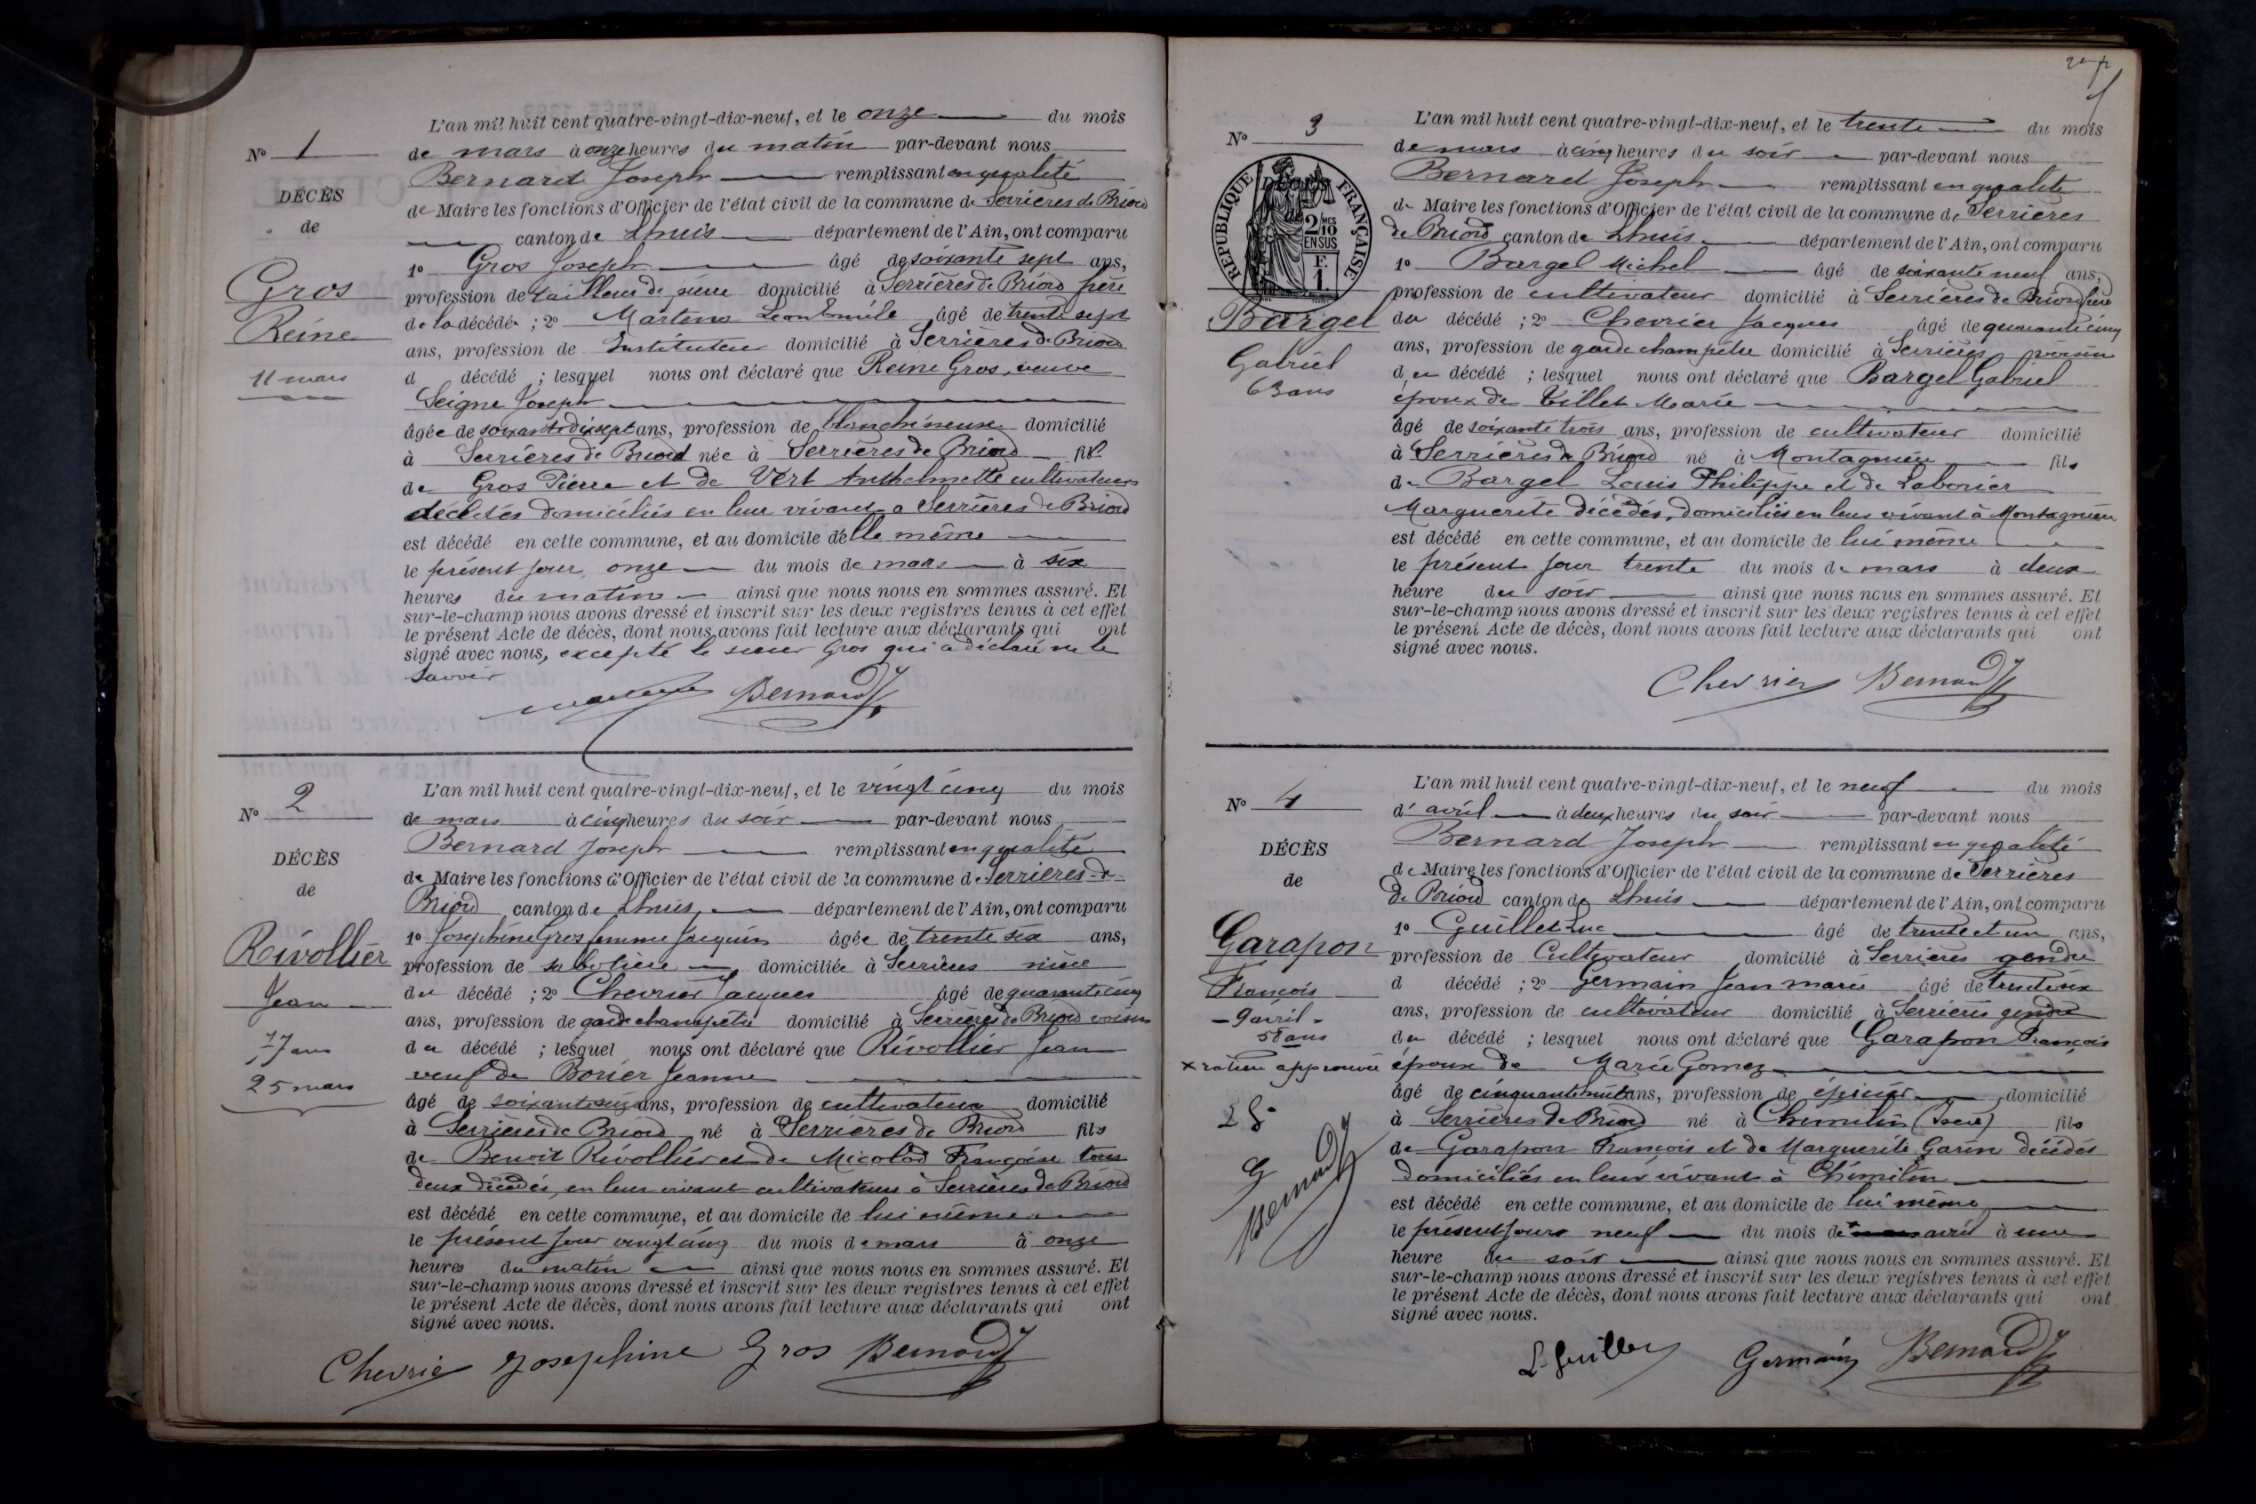 N° 1
DÉCÈS
de
Gros
Reine
11 mars
L'an mil huit cent quatre-vingt-dix-neuf, et le onze du mois
de mars à onze heures du matin par-devant nous
Bernard Joseph remplissant en qualité
de Maire les fonctions d'Officier de l'état civil de la commune de Serrières de Briord
canton de Lhuis département de l'Ain, ont comparu
1° Gros Joseph âgé de soixante sept ans,
profession de tailleur de pierre domicilié à Serrières de Briord frère
de la décédée ; 2° Martens Léon Emile âgé de trente sept
ans, profession de Instituteur domicilié à Serrières de Briord
d décédé ; lesquel nous ont déclaré que Reine Gros, veuve
Seigne Joseph
âgée de soixante dix sept ans, profession de domicilié
à Serrières de Briord née à Serrières de Briord fil
de Gros Pierre et de Vért Anthelmette cultivateurs
décédés domiciliés en leur vivant a Serrières de Briord
est décédé en cette commune, et au domicile d'elle même
le présent jour onze du mois de mars à six
heures du matin ainsi que nous nous en sommes assuré. Et
sur-le-champ nous avons dressé et inscrit sur les deux registres tenus à cet effet
le présent Acte de décès, dont nous avons fait lecture aux déclarants qui ont
signé avec nous, excepté le sieur Gros qui a déclaré ne le
savoir
Bernard J
N° 2
DÉCÈS
de
Rivollier
Jean
77 ans
25 mars
L'an mil huit cent quatre-vingt-dix-neuf, et le vingt cinq du mois
de mars à cinq heures du soir par-devant nous
Bernard Joseph remplissant en qualité
de Maire les fonctions d'Officier de l'état civil de la commune de Serrières de
Briord canton de Lhuis département de l'Ain, ont comparu
1° Joséphine Gros femme Jacquin âgée de trente six ans,
profession de sabotière domiciliée à Serrières nièce
du décédé ; 2° Chevrier Jacques âgé de quarante cinq
ans, profession de garde champêtre domicilié à Serrières de Briord voisin
du décédé ; lesquel nous ont déclaré que Rivollier Jean
veuf de Borier Jeanne
âgé de ans, profession de cultivateur domicilié
à Serrières de Briord né à Serrières de Briord fils
de Benoit Rivollier et de Micolod Françoise tous
deux décédés, en leur vivant cultivateurs à Serrières de Briord
est décédé en cette commune, et au domicile de lui même
le présent jour vingt cinq du mois de mars à onze
heures du matin ainsi que nous nous en sommes assuré. Et
sur-le-champ nous avons dressé et inscrit sur les deux registres tenus à cet effet
le présent Acte de décès, dont nous avons fait lecture aux déclarants qui ont
signé avec nous.
Chevrier Josephine Gros Bernard J
N° 3
RÉPUBLIQUE FRANÇAISE
2/10 EN SUS
F. 1
Bargel
Gabriel
63 ans
L'an mil huit cent quatre-vingt-dix-neuf, et le trente du mois
de mars à cinq heures du soir par-devant nous
Bernard Joseph remplissant en qualité
de Maire les fonctions d'Officier de l'état civil de la commune de Serrières
de Briord canton de Lhuis département de l'Ain, ont comparu
1° Bargel Michel âgé de soixante neuf ans,
profession de cultivateur domicilié à Serrières de Briord frère
du décédé ; 2° Chevrier Jacques âgé de quarante cinq
ans, profession de garde champêtre domicilié à Serrières voisin
du décédé ; lesquel nous ont déclaré que Bargel Gabriel
époux de Tillet Marie
âgé de soixante trois ans, profession de cultivateur domicilié
à Serrières de Briord né à Montagnieu fils
de Bargel Louis Philippe et de Laborier
Marguerite décédés, domiciliés en leur vivant à Montagnieu
est décédé en cette commune, et au domicile de lui même
le présent jour trente du mois de mars à deux
heure du soir ainsi que nous nous en sommes assuré. Et
sur-le-champ nous avons dressé et inscrit sur les deux registres tenus à cet effet
le présent Acte de décès, dont nous avons fait lecture aux déclarants qui ont
signé avec nous.
Chevrier Bernard J
N° 4
DÉCÈS
de
Garapon
François
- 9 avril -
58 ans
x rature approuvée
Bernard J
L'an mil huit cent quatre-vingt-dix-neuf, et le neuf du mois
d'avril à deux heures du soir par-devant nous
Bernard Joseph remplissant en qualité
de Maire les fonctions d'Officier de l'état civil de la commune de Serrières
de Briord canton de Lhuis département de l'Ain, ont comparu
1° Guillet Luc âgé de trente et un ans,
profession de Cultivateur domicilié à Serrières gendre
d décédé ; 2° Germain Jean marie âgé de
ans, profession de cultivateur domicilié à Serrières gendre
du décédé ; lesquel nous ont déclaré que Garapon François
époux de Marie Gomez
âgé de cinquante huit ans, profession de épicier domicilié
à Serrières de Briord né à Chimilin (Isère) fils
de Garapon François et de Marguerite Garin décédés
domiciliés en leur vivant à Chimilin
est décédé en cette commune, et au domicile de lui même
le présent jour neuf du mois d x avril à une
heure du soir ainsi que nous nous en sommes assuré. Et
sur-le-champ nous avons dressé et inscrit sur les deux registres tenus à cet effet
le présent Acte de décès, dont nous avons fait lecture aux déclarants qui ont
signé avec nous.
L. Guillet Germain Bernard J